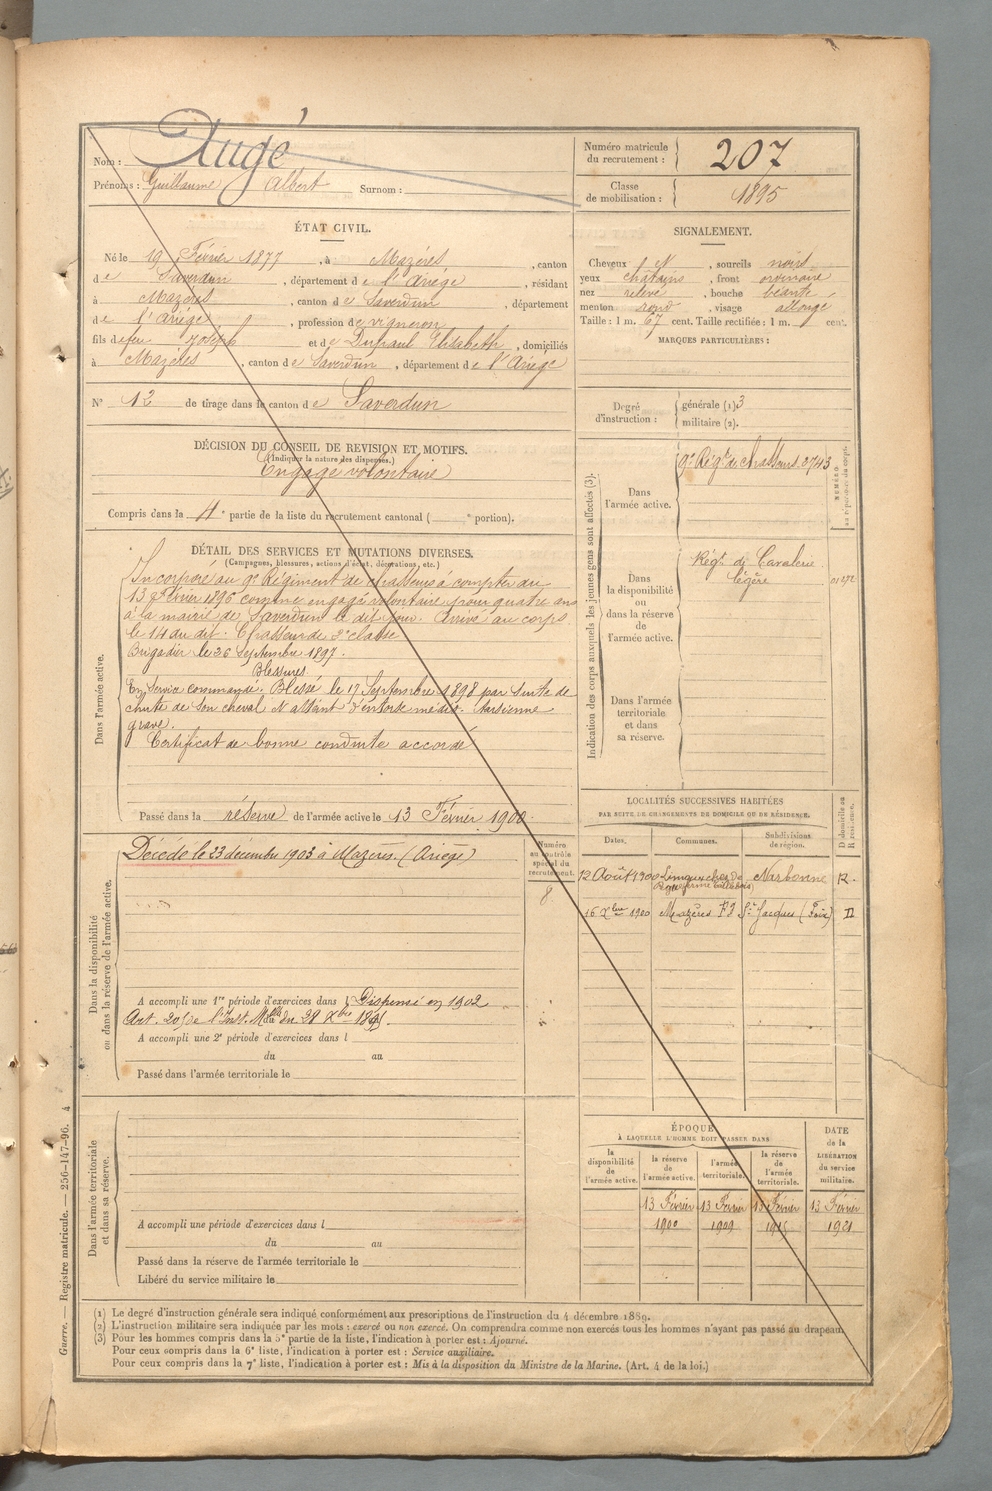 Nom : Augé
Prénoms : Guillaume Albert Surnom :
Numéro matricule
du recrutement : 207
Classe
de mobilisation : 1895
ÉTAT CIVIL.
Né le 19 Février 1877, à Mazères, canton
de Saverdun, département de l'Ariège, résidant
à Mazères, canton de Saverdun, département
de l'Ariège, profession de vigneron
fils de feu Joseph et de Dupaul Elisabeth, domiciliés
à Mazères, canton de Saverdun, département de l'Ariège
N° 12 de tirage dans le canton de Saverdun
DÉCISION DU CONSEIL DE REVISION ET MOTIFS.
(Indiquer la nature des dispenses.)
Engagé volontaire
Compris dans la 4e partie de la liste du recrutement cantonal ( e portion).
SIGNALEMENT.
Cheveux N, sourcils noirs
yeux chatains, front ordinaire
nez relevé, bouche béante
menton rond, visage allongé
Taille : 1 m. 67 cent. Taille rectifiée : 1 m. cent.
MARQUES PARTICULIÈRES :
Degré
d'instruction :
générale (1). 3
militaire (2).
DÉTAIL DES SERVICES ET MUTATIONS DIVERSES.
(Campagnes, blessures, actions d'éclat, décorations, etc.)
Dans l'armée active.
Incorporé au 9e Régiment de chasseurs à compter du
13 Février 1896 comme engagé volontaire pour quatre ans
à la mairie de Saverdun le dit jour. Arrivé au corps
le 14 du dit : Chasseur de 2e classe
Brigadier le 26 Septembre 1897.
Blessures
En service commandé. Blessé le 17 Septembre 1898 par suite de
chute de son cheval N atteint d'entorse médio-tarsienne
grave.
Certificat de bonne conduite accordé
Passé dans la réserve de l'armée active le 13 Février 1900
Indication des corps auxquels les jeunes gens sont affectés (3).
Dans
l'armée active.
9e Régt de chasseurs 2743
NUMÉRO
au répertoire du corps.
Dans
la disponibilité
ou
dans la réserve
de
l'armée active.
Régt de Cavalerie
légère
Dans l'armée
territoriale
et dans
sa réserve.
Dans la disponibilité
ou dans la réserve de l'armée active.
Décédé le 23 décembre 1903 à Mazères. (Ariège)
Numéro
au contrôle
spécial du
recrutement.
8
A accompli une 1re période d'exercices dans l Dispensé en 1902
Art. 205 de l'Inst. Melle du 28 Xbre
A accompli une 2e période d'exercices dans l
du au
Passé dans l'armée territoriale le
LOCALITÉS SUCCESSIVES HABITÉES
PAR SUITE DE CHANGEMENTS DE DOMICILE OU DE RÉSIDENCE.
Dates. Communes. Subdivisions de région. D domicile ou R résidence.
12 Août 1900 Limoux chez Narbonne R.
16 Xbre 1900 Mazères St Jacques (Foix) D
Dans l'armée territoriale
et dans sa réserve.
A accompli une période d'exercices dans l
du au
Passé dans la réserve de l'armée territoriale le
Libéré du service militaire le
ÉPOQUE
À LAQUELLE L'HOMME DOIT PASSER DANS
la disponibilité de l'armée active.
la réserve de l'armée active.
l'armée territoriale.
la réserve de l'armée territoriale.
DATE de la LIBÉRATION du service militaire.
13 Février 13 Février 13 Février 13 Février
1900 1909 1915 1921
(1) Le degré d'instruction générale sera indiqué conformément aux prescriptions de l'instruction du 4 décembre 1889.
(2) L'instruction militaire sera indiquée par les mots : exercé ou non exercé. On comprendra comme non exercés tous les hommes n'ayant pas passé au drapeau.
(3) Pour les hommes compris dans la 5e partie de la liste, l'indication à porter est : Ajourné.
Pour ceux compris dans la 6e liste, l'indication à porter est : Service auxiliaire.
Pour ceux compris dans la 7e liste, l'indication à porter est : Mis à la disposition du Ministre de la Marine. (Art. 4 de la loi.)
Guerre. — Registre matricule. — 256-147-96. 4